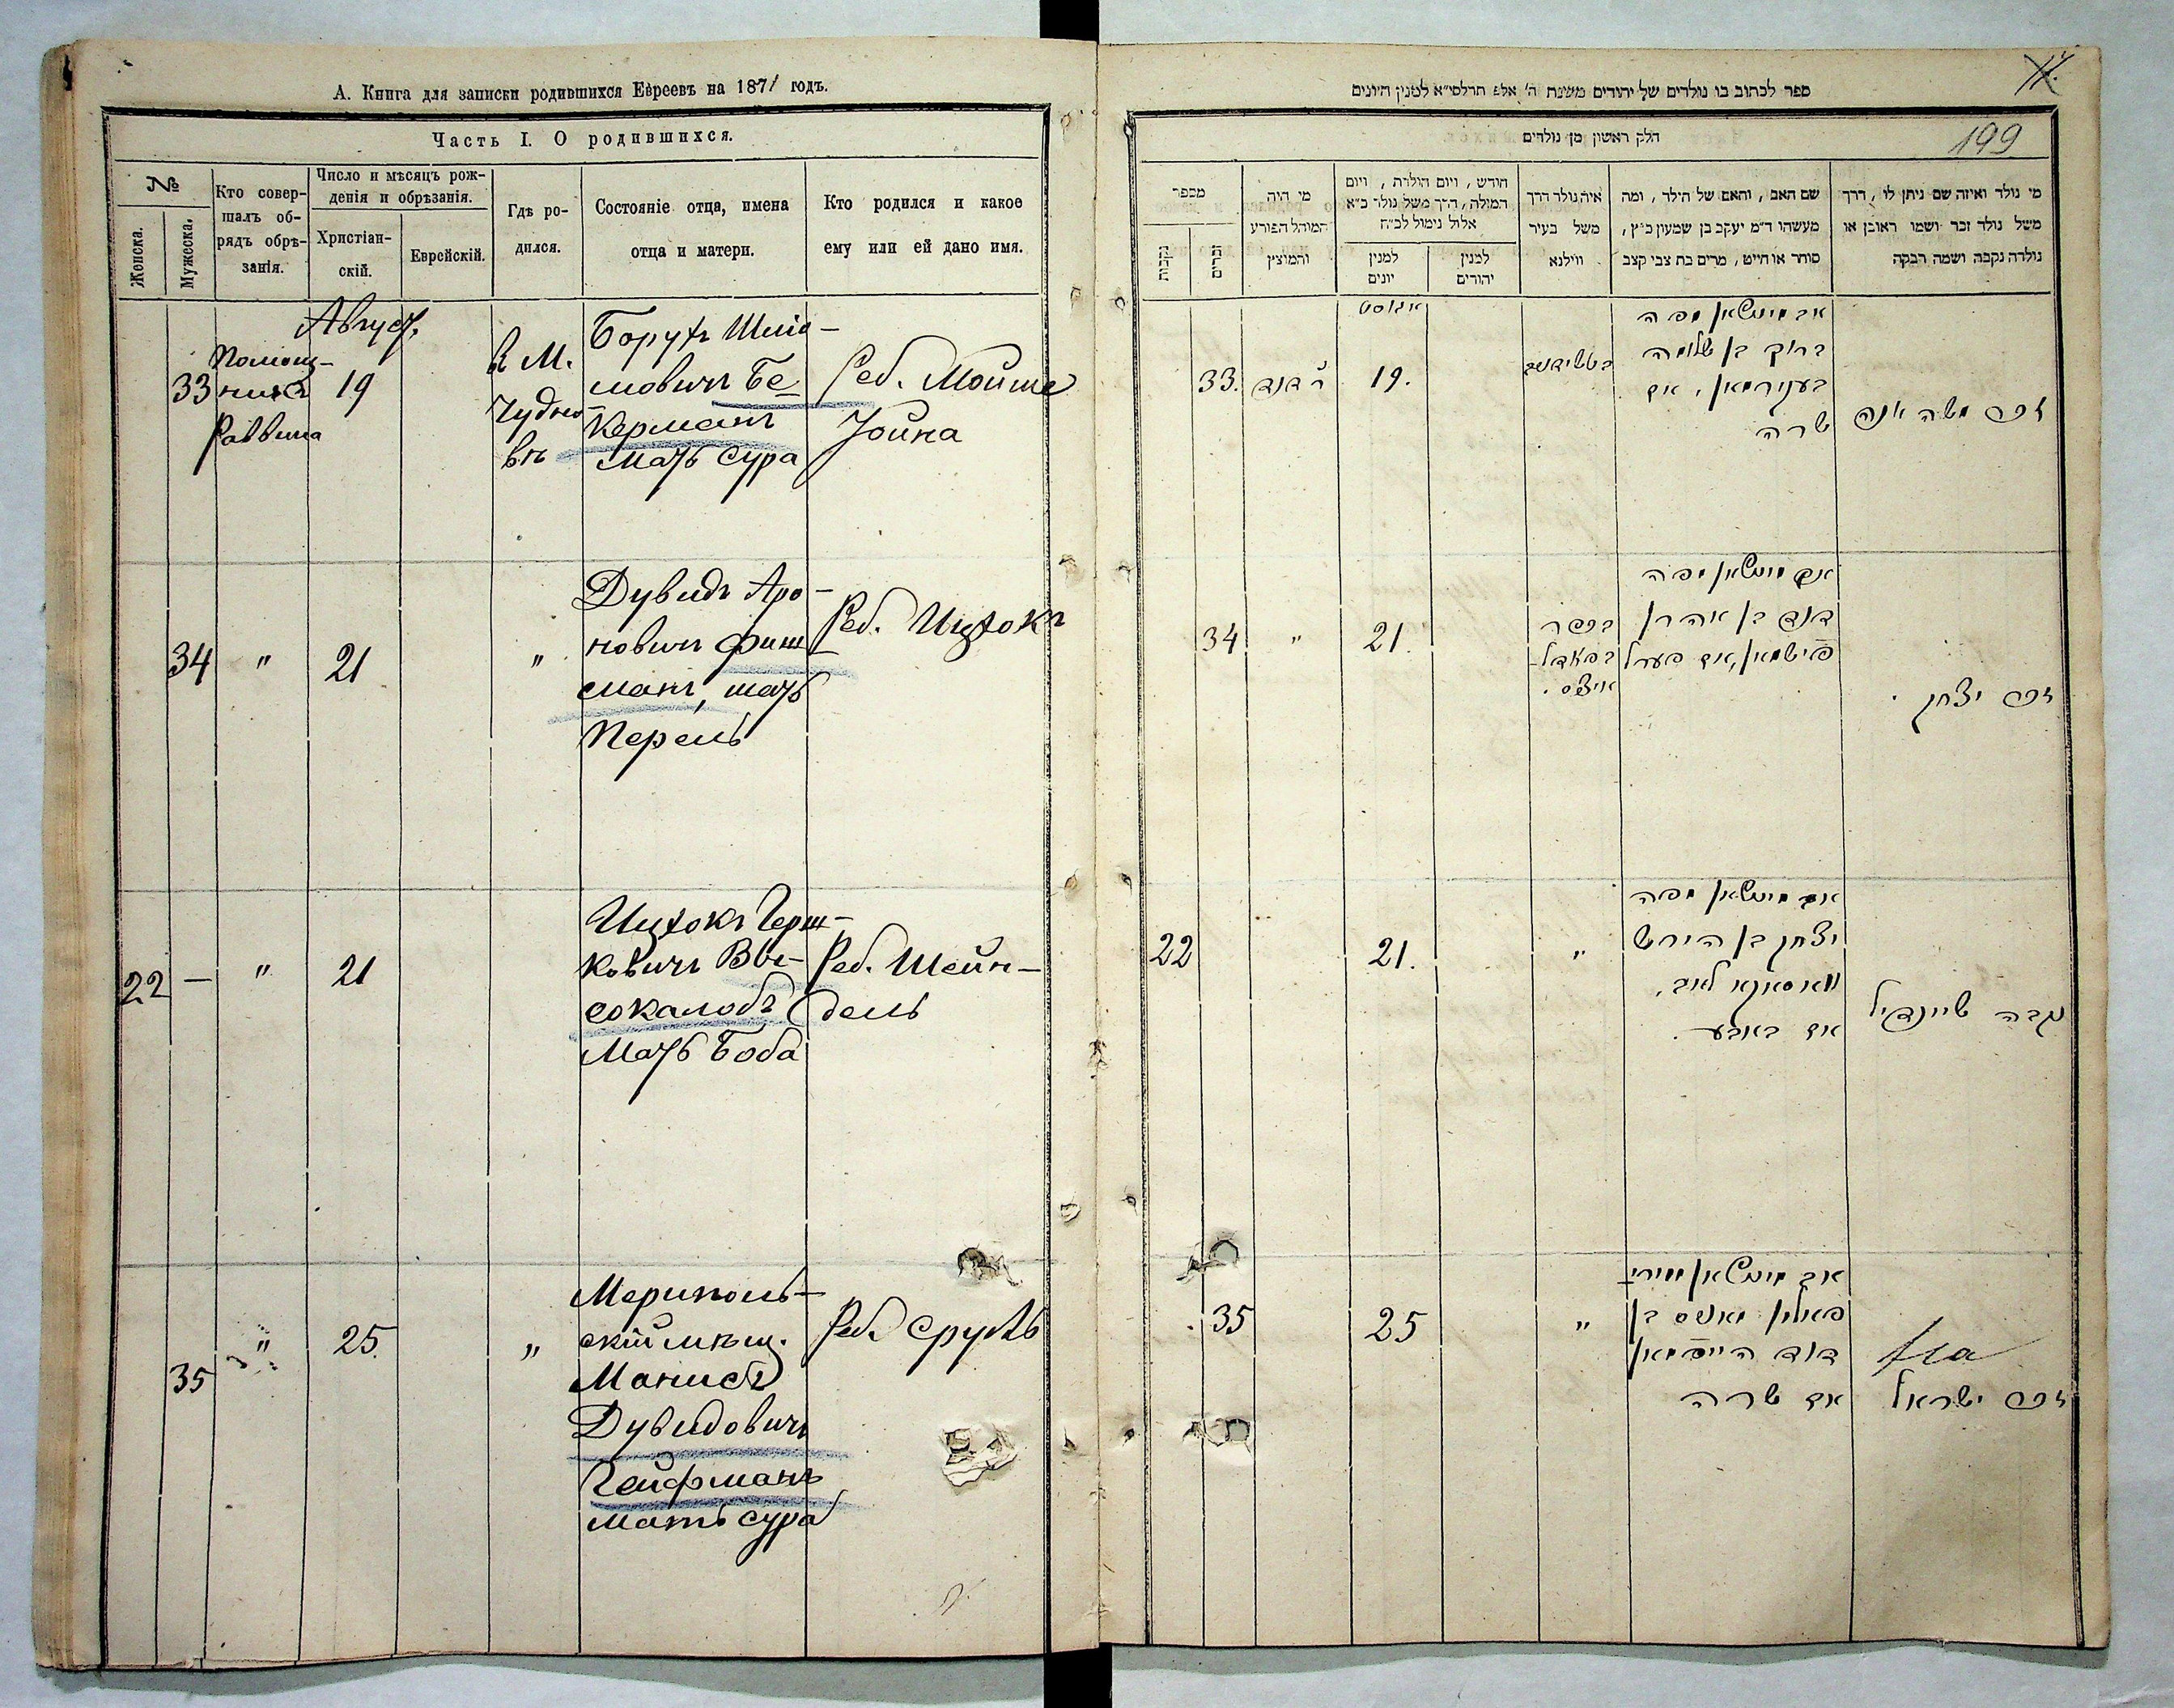 А. Книга для записки родившихся Евреевъ на 1871 годъ.
Часть I. О родившихся.
№
Женска.
Мужеска.
Кто совер-
шалъ об-
рядъ обрѣ-
занія.
Число и мѣсяцъ рож-
денія и обрѣзанія.
Христіан-
скій.
Еврейскій.
Гдѣ ро-
дился.
Состояніе отца, имена
отца и матери.
Кто родился и какое
ему или ей дано имя.
Август.
33
Помощ-
никъ
Раввина
19
в М.
Чудно-
вѣ
Борухъ Шліо-
мовичъ Бе
керманъ
мать Сура
Реб. Мойше
Іойна
34
"
21
"
Дувидъ Аро-
новичъ Фиш
манъ, мать
Перель
Реб. Ицхокъ
22
—
"
21
Ицхокъ Герш-
ковичъ Вы-
сокалобъ
Мать Боба
Реб. Шейн-
дель
35
"
25.
"
Мерополь-
скій мѣщ.
Манисъ
Дувидовичъ
Гейфманъ
мать Сура
Реб. Сруль
ספר לכתוב בו נולדים של יהודים משנת ה' אלף תרלסי"א למנין היונים
חלק ראשון מן נולדים
199
מספר
נקבות
זכרים
מי היה
המוהל הפורע
והמוצץ
חודש, ויום הולדת, ויום
המילה, דרך משל נולד כ"א
אלול נימול לכ"ח
למנין
יונים
למנין
יהודים
איה נולד דרך
משל בעיר
ווילנא
שם האב, והאם של הילד, ומה
מעשהו ד"מ יעקב בן שמעון כ"ץ,
סוחר או חייט, מרים בת צבי קצב
מי נולד ואיזה שם ניתן לו, דרך
משל נולד זכר ושמו ראובן או
נולדה נקבה ושמה רבקה
אוגוסט
33.
ר' דוד
19.
בטשידנוב
אב מיעשאן מפה
ברוך בן שלומה
בעקירמאן, אם
שרה
זכר משה יונה
34
"
21.
בכפר
אב מיעשאן מפה
דוד בן אהרן
פישמאן, אם פערל
זכר יצחק.
22
21.
"
אב מיעשאן מפה
יצחק בן הירש
וויסאקא לוב,
אם באבע.
נקבה שיינדיל
35
25
"
אב מיעשאן מירי-
פאליע מאניס בן
דוד הייפמאן
אם שרה
זכר ישראל